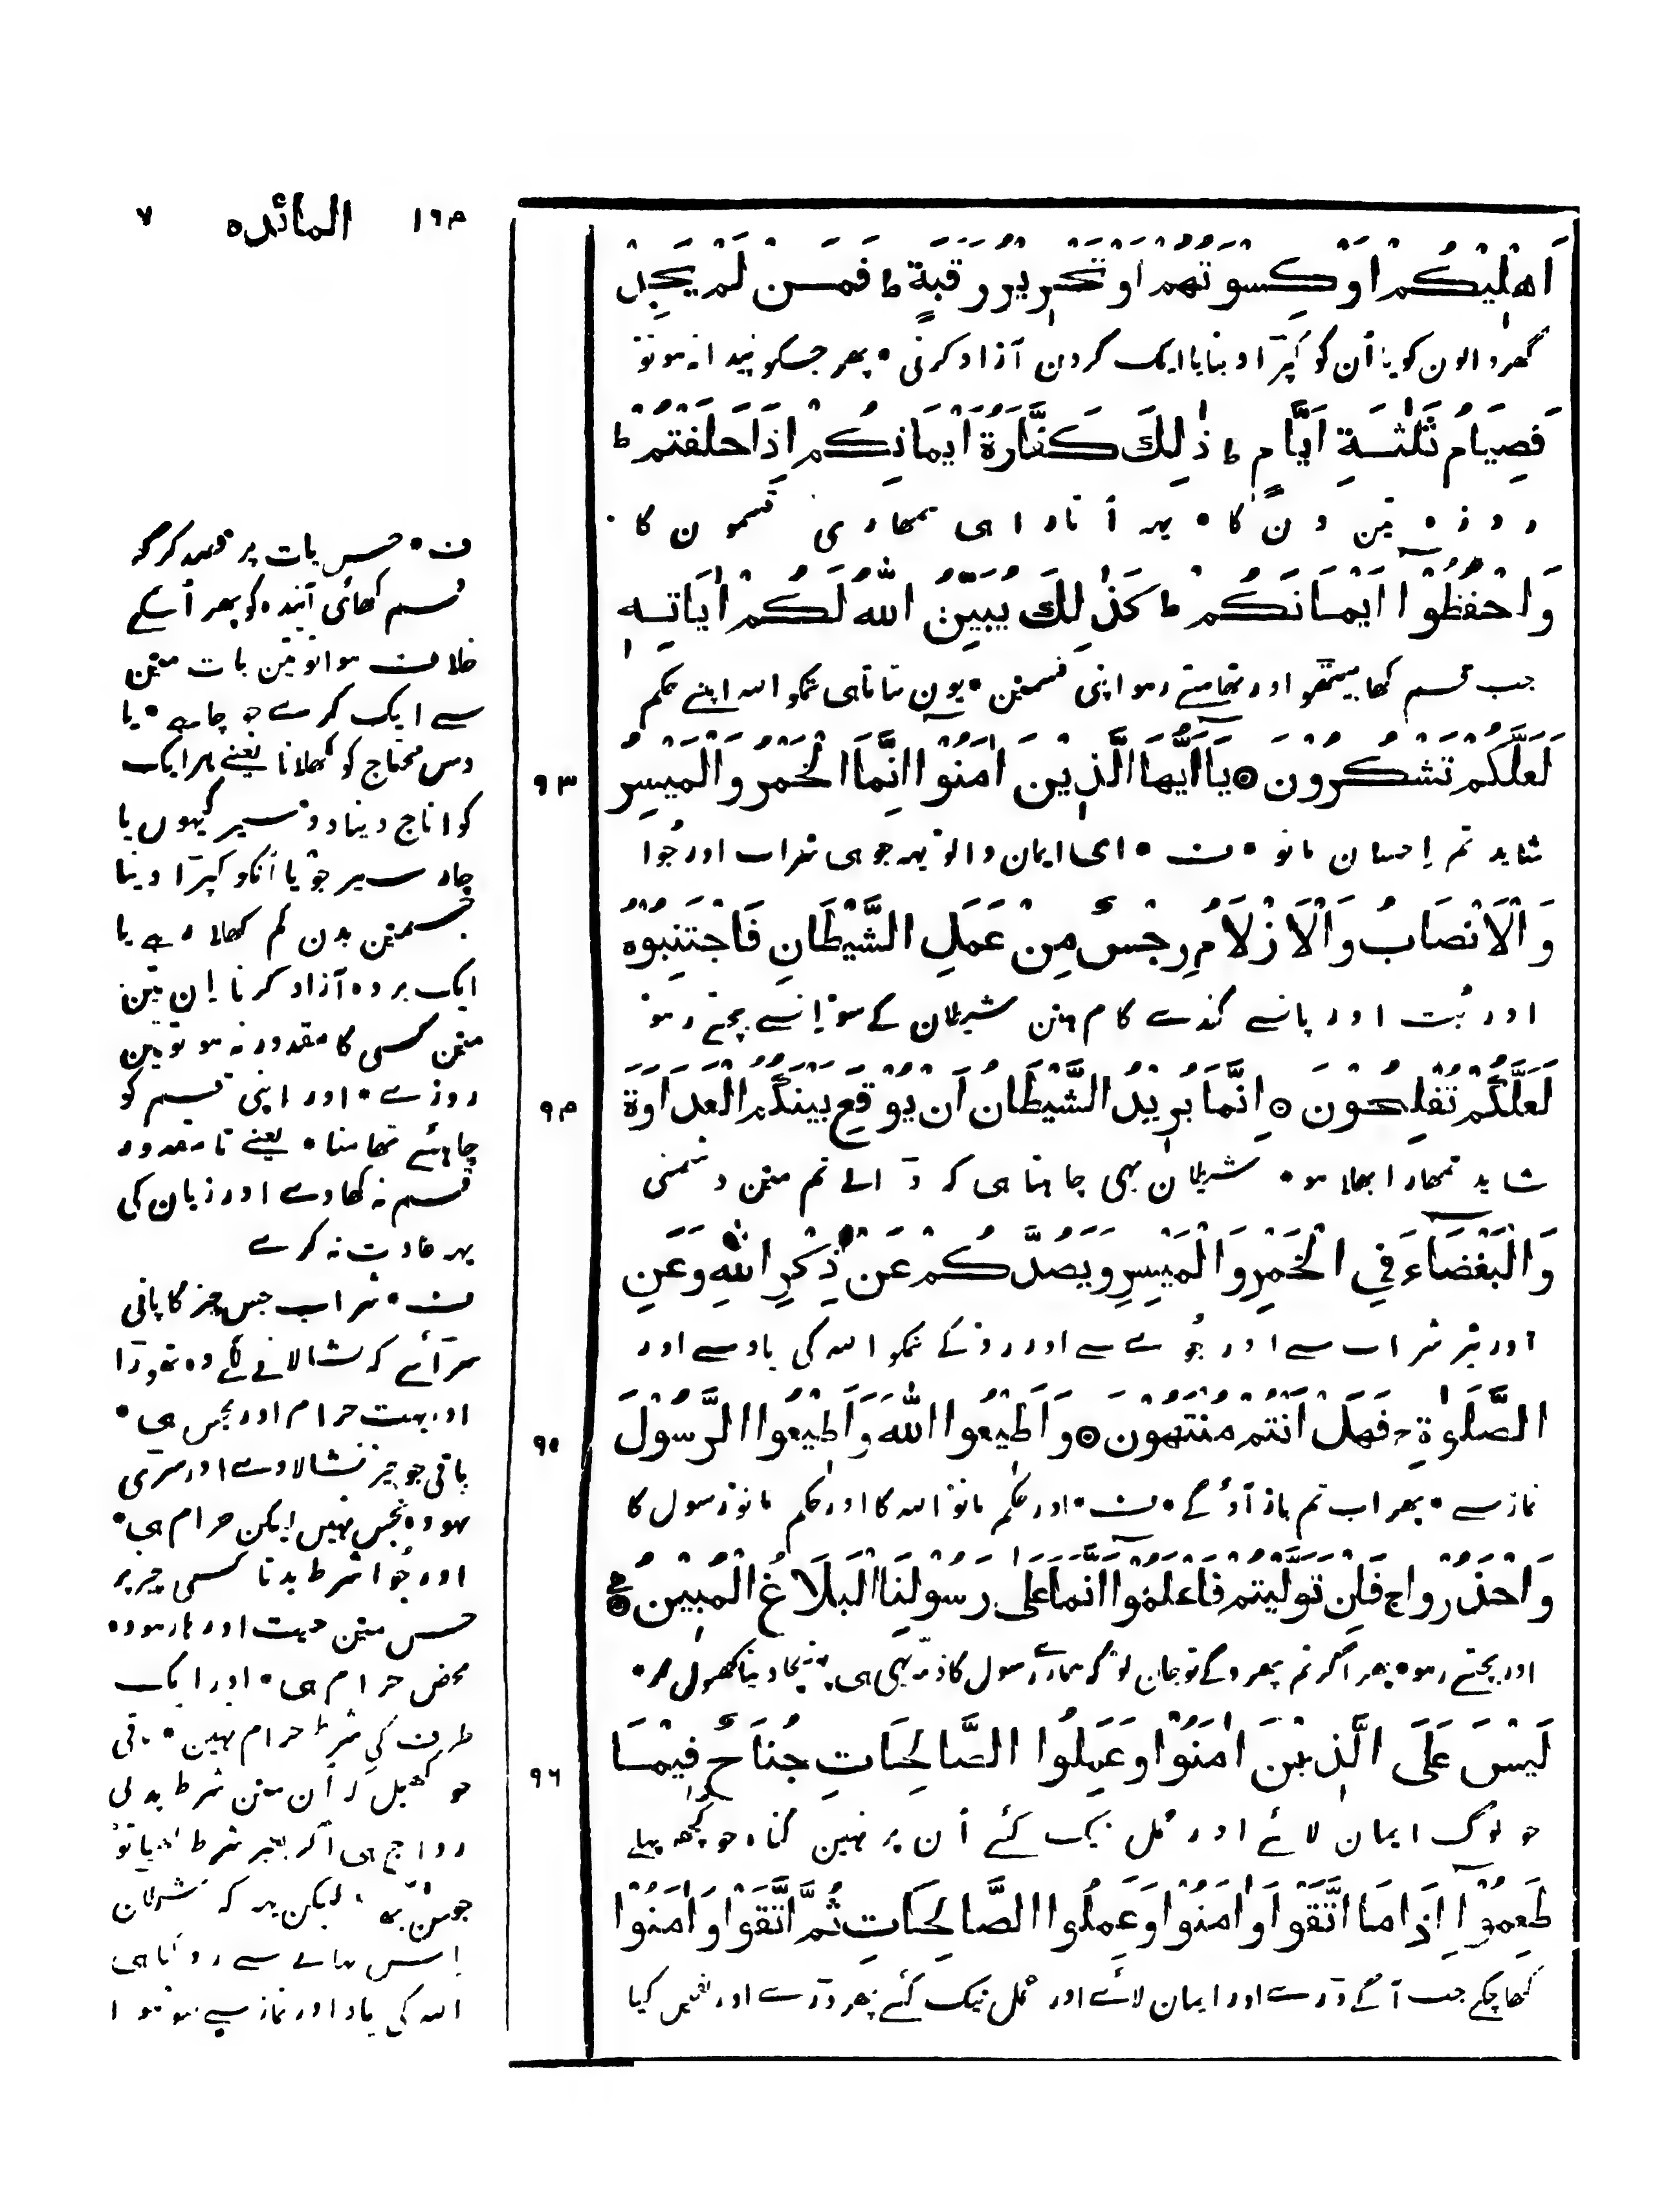 ۱۶۴ المائده ۷
اَهْلِيْكُمْ اَوْ كِسْوَتُهُمْ اَوْ تَحْرِيْرُ رَقَبَةٍ ط فَمَنْ لَمْ يَجِدْ
گھر والون کو یا اُن کو کپڑا دینا یا ایک گردن آزاد کرنی • پھر جسکو پیدا نہ ہو تو
فَصِيَامُ ثَلٰثَةِ اَيَّامٍ ط ذٰلِكَ كَفَّارَةُ اَيْمَانِكُمْ اِذَا حَلَفْتُمْ ط
روزہ تین دن کا • یہہ اُتار ا ہی تمھاری قسمون کا •
وَاحْفَظُوْا اَيْمَانَكُمْ ط كَذٰلِكَ يُبَيِّنُ اللّٰهُ لَكُمْ اٰيَاتِهٖ
جب قسم کھا بیٹھو اور تھامتے رہو اپنی قسمین • یون بتاتا ہی تمکو اللہ اپنے حکم
لَعَلَّكُمْ تَشْكُرُوْنَ ۞ يَا اَيُّهَا الَّذِيْنَ اٰمَنُوْا اِنَّمَا الْخَمْرُ وَالْمَيْسِرُ
۹۳
شاید تم اِحسان مانو • ف • ای ایمان والو یہہ جو ہی شراب اور جُوا
وَالْاَنْصَابُ وَالْاَزْلَامُ رِجْسٌ مِنْ عَمَلِ الشَّيْطَانِ فَاجْتَنِبُوْهُ
اور بُت اور پانسے گندے کام ہین شیطان کے سو اِنسے بچتے رہو
لَعَلَّكُمْ تُفْلِحُوْنَ ۞ اِنَّمَا يُرِيْدُ الشَّيْطَانُ اَنْ يُوْقِعَ بَيْنَكُمُ الْعَدَاوَةَ
۹۴
شاید تمھارا بھلا ہو • شیطان یہی چاہتا ہی کہ ڈالے تم مین دشمنی
وَالْبَغْضَاءَ فِي الْخَمْرِ وَالْمَيْسِرِ وَيَصُدَّكُمْ عَنْ ذِكْرِ اللّٰهِ وَعَنِ
اور بیر شراب سے اور جُوے سے اور روکے تمکو اللہ کی یاد سے اور
الصَّلٰوةِ ج فَهَلْ اَنْتُمْ مُنْتَهُوْنَ ۞ وَاَطِيْعُوا اللّٰهَ وَاَطِيْعُوا الرَّسُوْلَ
۹۵
نماز سے • پھر اب تم باز آؤ گے • ف • اور حکم مانو اللہ کا اور حکم مانو رسول کا
وَاحْذَرُوا ج فَاِنْ تَوَلَّيْتُمْ فَاعْلَمُوْا اَنَّمَا عَلٰى رَسُوْلِنَا الْبَلَاغُ الْمُبِيْنُ ۞ ع
اور بچتے رہو • پھر اگر تم پھروگے تو جان لو کہ ہمارے رسول کا ذمہ یہی ہی پہنچا دینا کھول کر •
لَيْسَ عَلَى الَّذِيْنَ اٰمَنُوْا وَعَمِلُوا الصَّالِحَاتِ جُنَاحٌ فِيْمَا
۹۶
جو لوگ ایمان لائے اور عمل نیک کئے اُن پر نہین گناہ جو کچھ پہلے
طَعِمُوْا اِذَا مَا اتَّقَوْا وَاٰمَنُوْا وَعَمِلُوا الصَّالِحَاتِ ثُمَّ اتَّقَوْا وَاٰمَنُوْا
کھا چکے جب آگے ڈرے اور ایمان لائے اور عمل نیک کئے پھر ڈرے اور یقین کیا
ف • جس بات پر قصد کر کر
قسم کھائی آئندہ کو پھر اُسکے
خلاف ہوا تو تین بات مین
سے ایک کرے جو چاہے • یا
دس محتاج کو کھلانا یعنے ہر ایک
کو اناج دینا دو سیر گیہوں یا
چار سیر جَو یا اُنکو کپڑا دینا
جسمین بدن کم کھلا رہے یا
ایک بردہ آزاد کرنا اِن تین
مین کسی کا مقدور نہ ہو تو تین
روزے • اور اپنی قسم کو
چاہئے تھامنا • یعنے تا مقدور
قسم نہ کھاوے اور زبان کی
یہہ عادت نہ کرے
ف • شراب جس چیز کا پانی
سڑائے کہ نشا لانے لگے وہ تھوڑا
اور بہت حرام اور نجس ہی •
باقی جو چیز نشا لاوے اور سڑی
ہو وہ نجس نہیں لیکن حرام ہی •
اور جُوا شرط بدنا کسی چیز پر
جس مین جیت اور ہار ہو وہ
محض حرام ہی • اور ایک
طرف کی شرط حرام نہین • باقی
جو کھیل کہ اُن مین شرط بدنی
رواج ہی اگر بغیر شرط
لیکن یہہ کہ شیطان
اِس بہانے سے روکتا ہی
اللہ کی یاد اور نماز سے